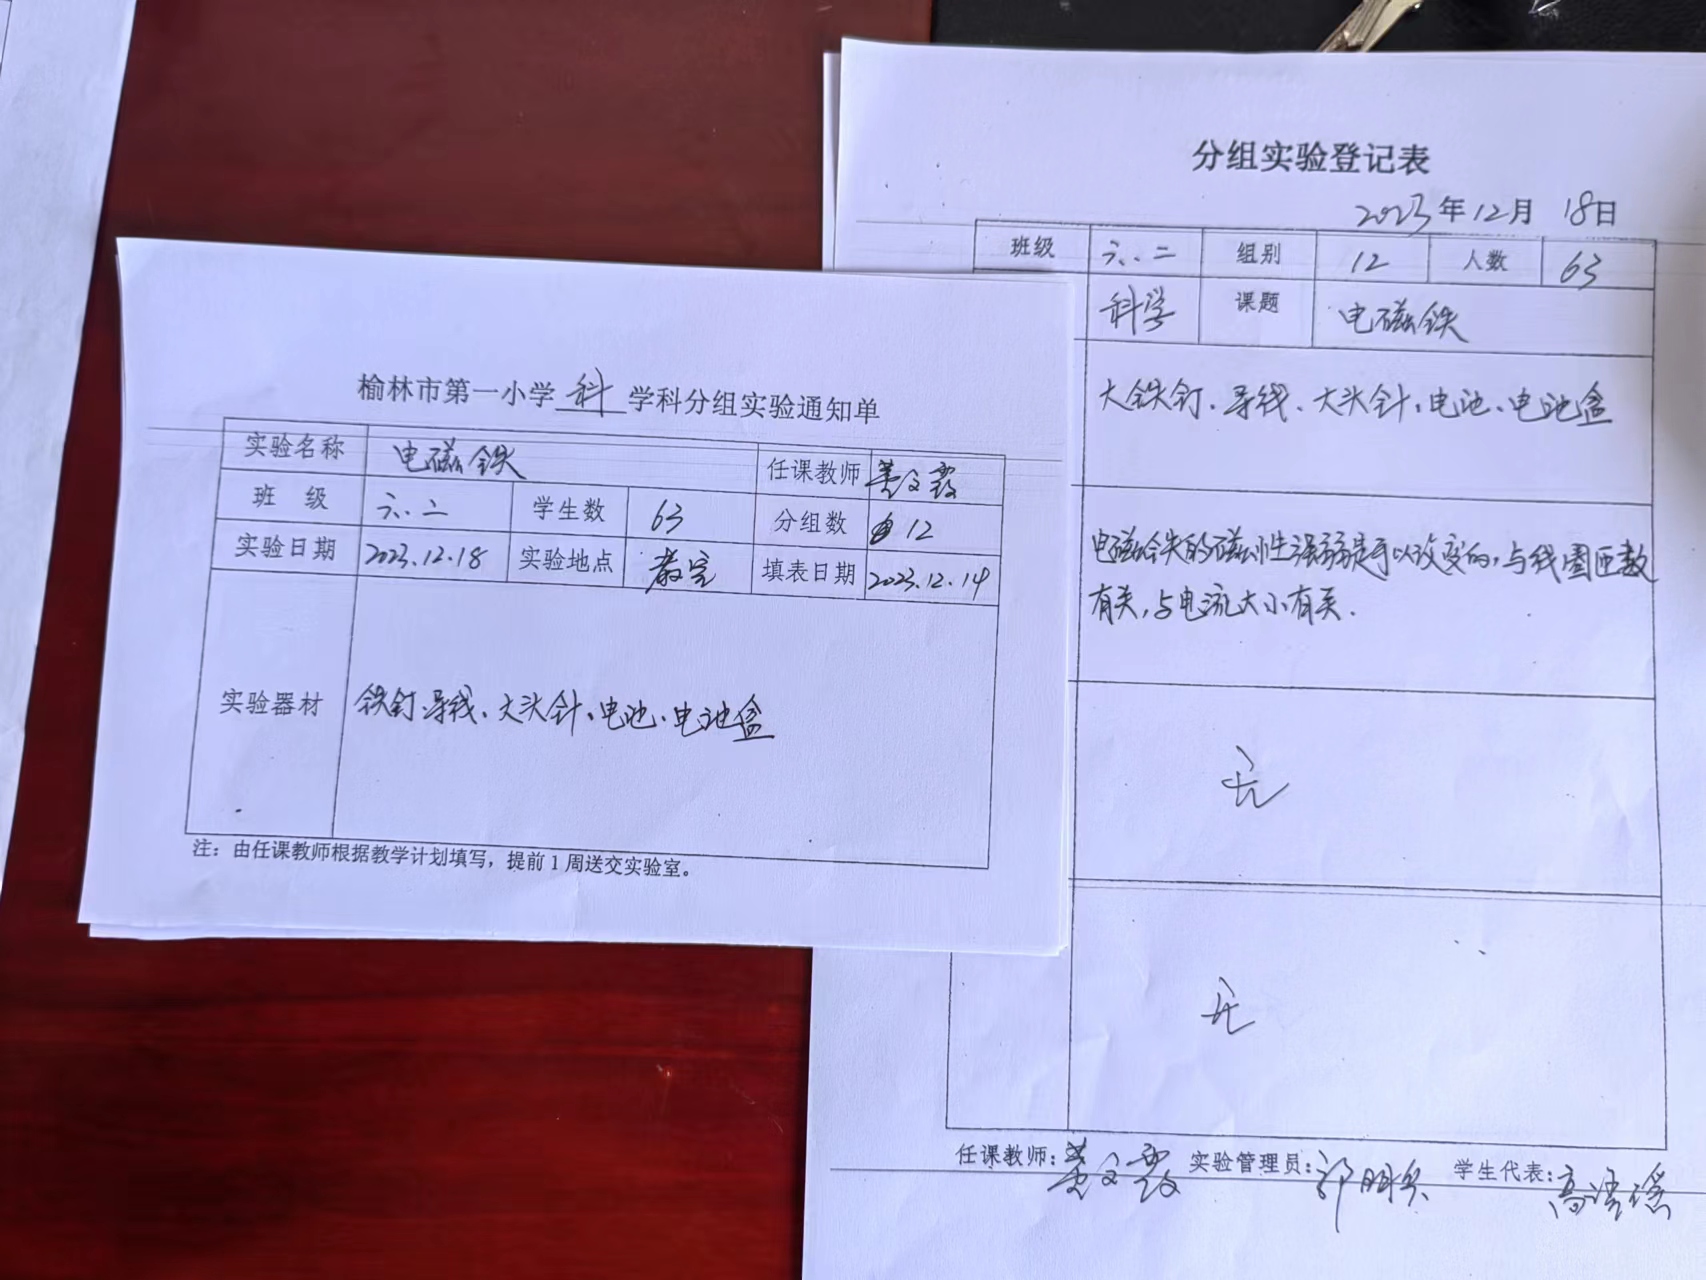 榆林市第一小学 科 学科分组实验通知单
实验名称 电磁铁 任课教师
班 级 六.二 学生数 63 分组数 12
实验日期 2023.12.18 实验地点 教室 填表日期 2023.12.14
实验器材 铁钉、导线、大头针、电池、电池盒
注：由任课教师根据教学计划填写，提前1周送交实验室。
分组实验登记表
2023年12月 18日
班级 六.二 组别 12 人数 63
科学 课题 电磁铁
大铁钉、导线、大头针、电池、电池盒
电磁铁的磁性强弱是可以改变的，与线圈匝数
有关，与电流大小有关.
无
无
任课教师： 实验管理员： 学生代表：